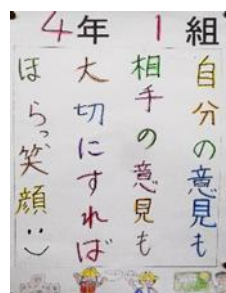 4年1組
自分の意見も
相手の意見も
大切にすれば
ほらっ笑顔